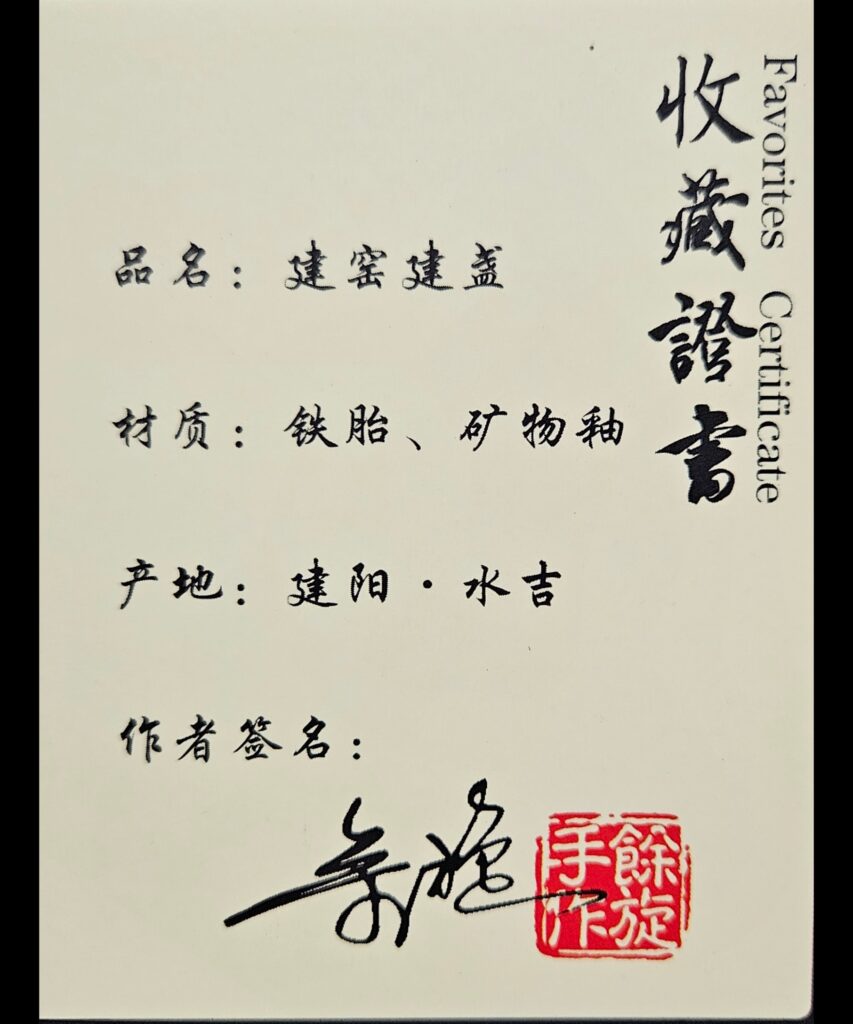 收藏證書
Favorites Certificate
品名：建窑建盏
材质：铁胎、矿物釉
产地：建阳·水吉
作者签名：
餘旋
手作